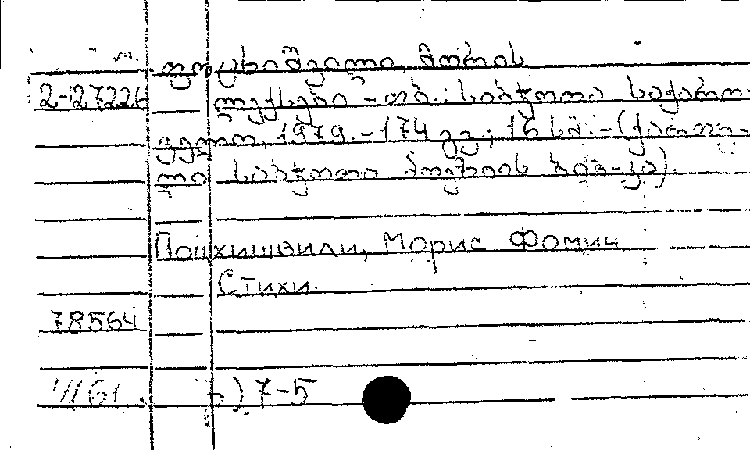 ფოცხიშვილი, მორის
2-27226 ლექსები. -თბ.: საბჭოთა საქართ-
ველო, 1979. -174 გვ.; 16 სმ. -(ქართუ-
ლი საბჭოთა პოეზიის ბიბ-კა).
Поцхишвили, Морис Фомич
Стихи.
78564
) 7-5